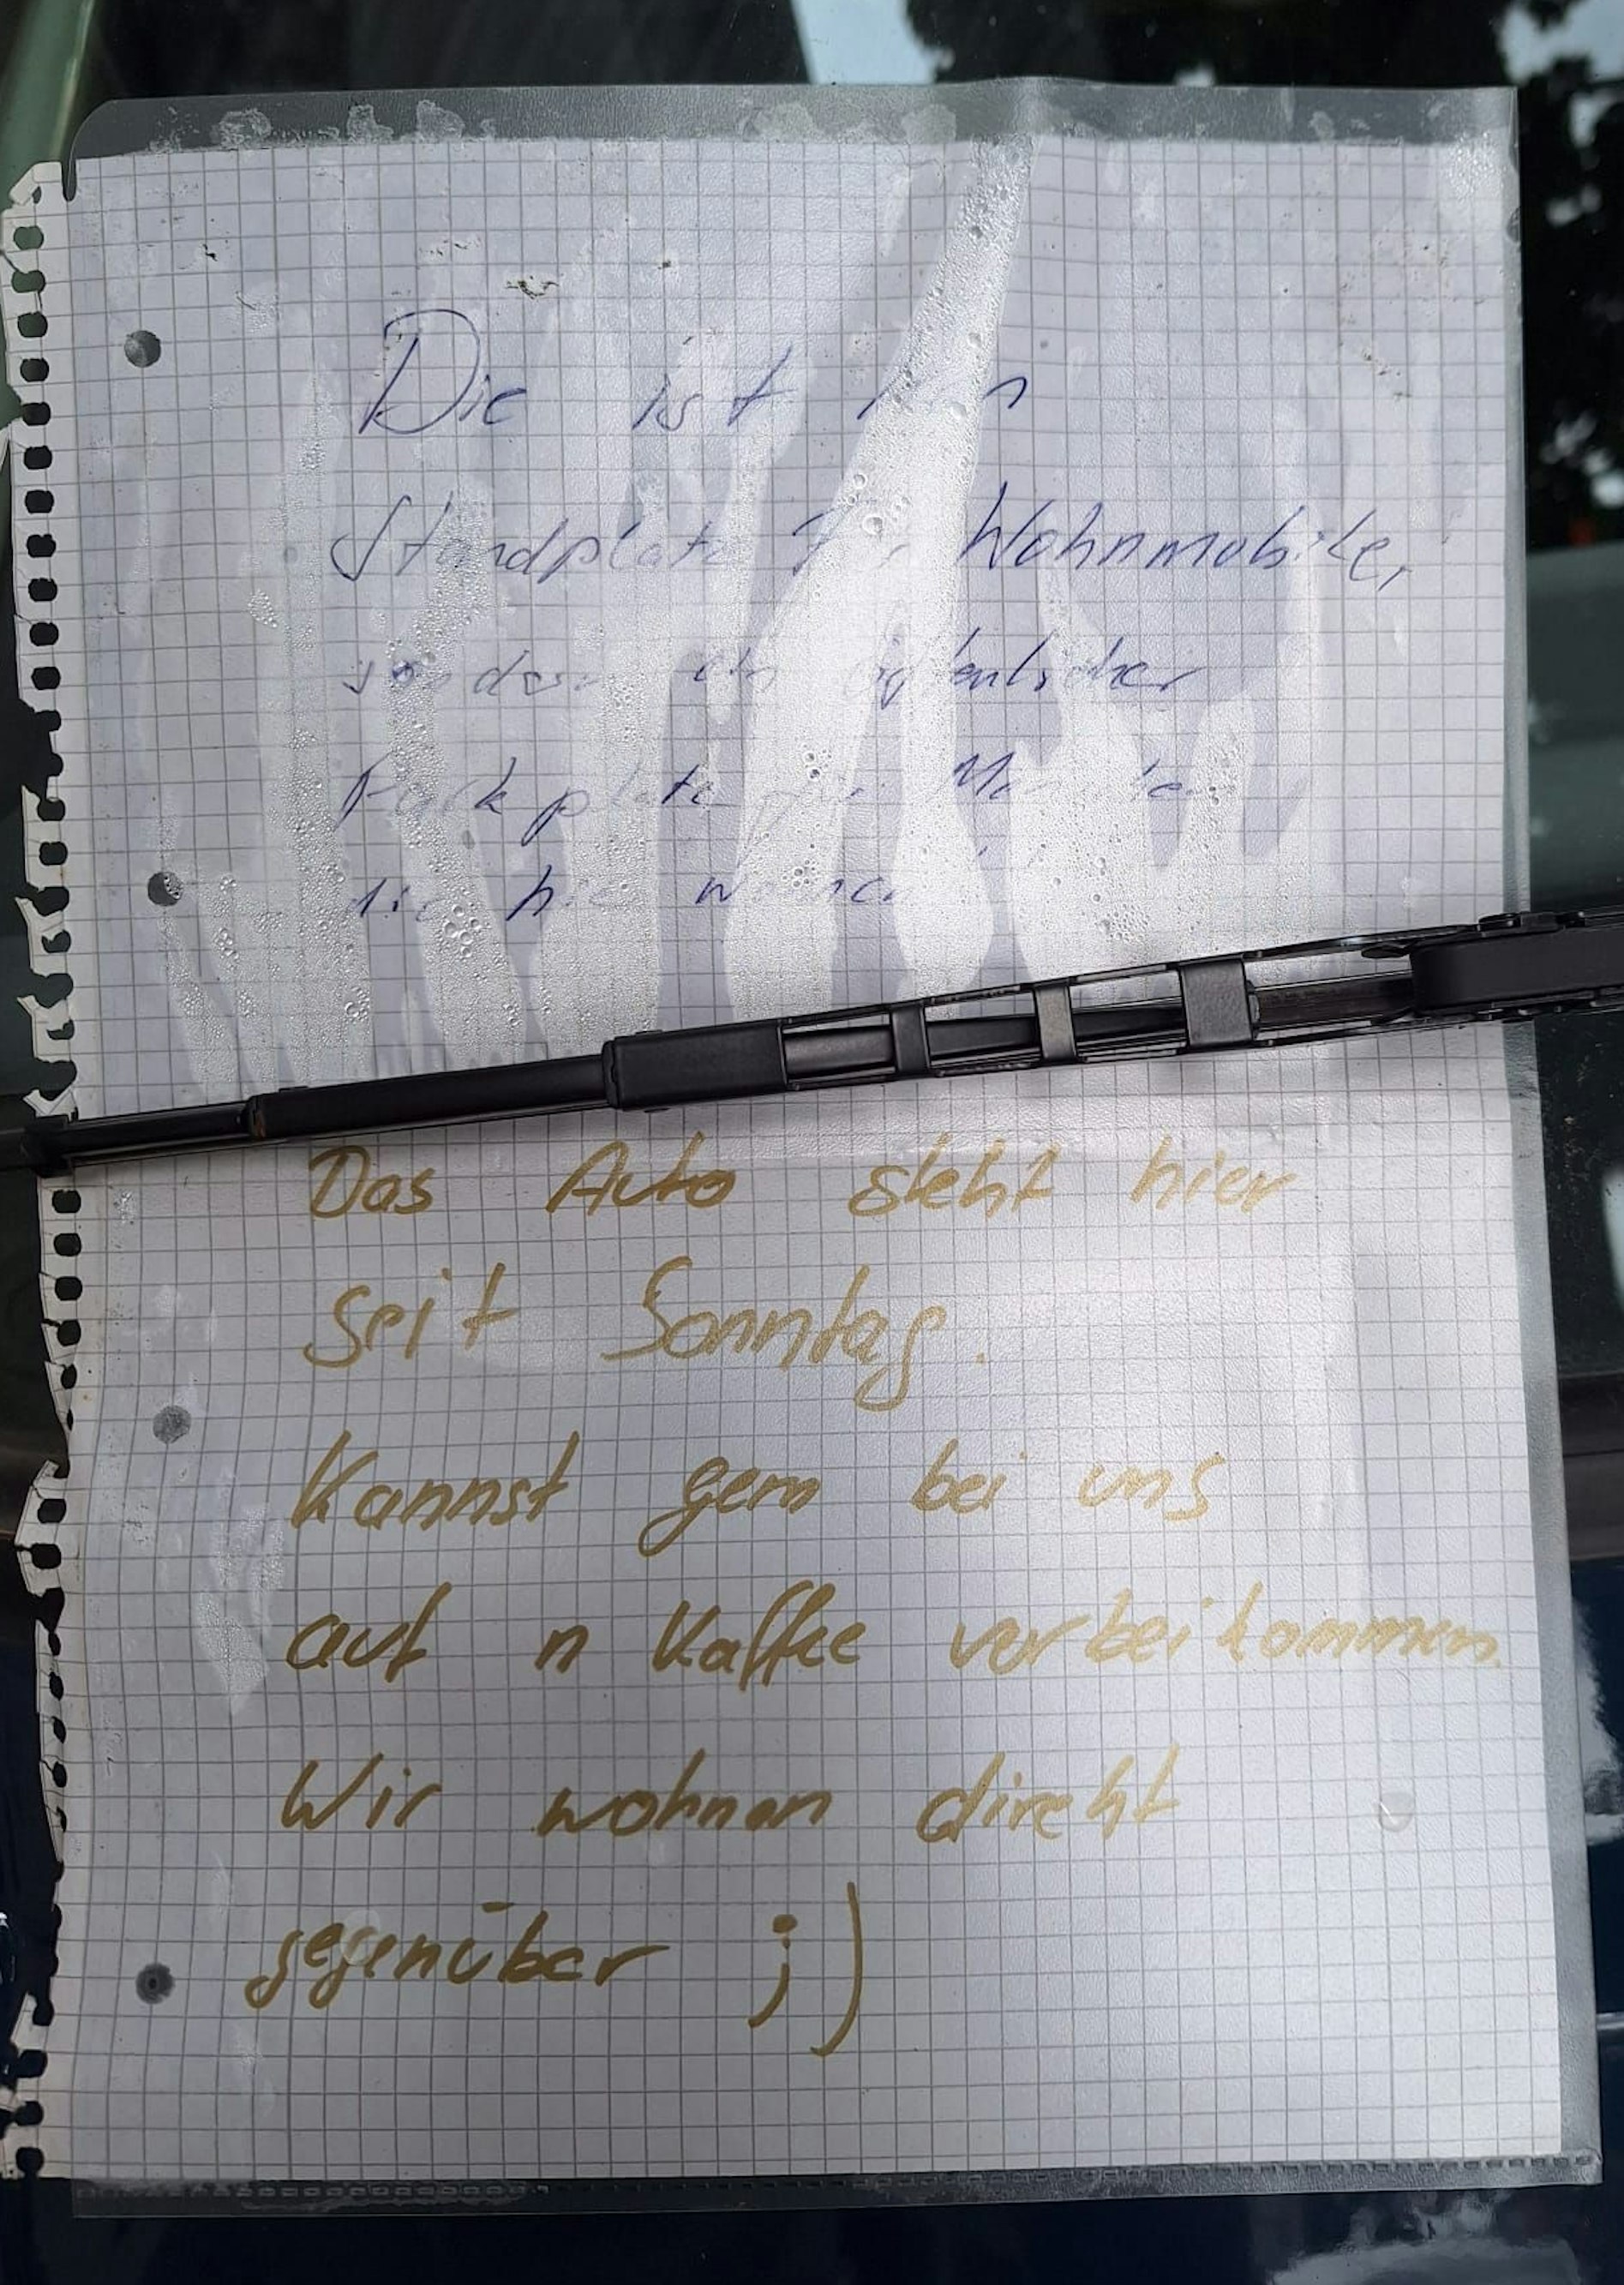 Die ist kein
Standplatz für Wohnmobile,
sondern ein öffentlicher
Parkplatz für Menschen
die hier wohnen
Das Auto steht hier
seit Sonntag.
Kannst gern bei uns
auf n Kaffee vorbeikommen.
Wir wohnen direkt
gegenüber ;)